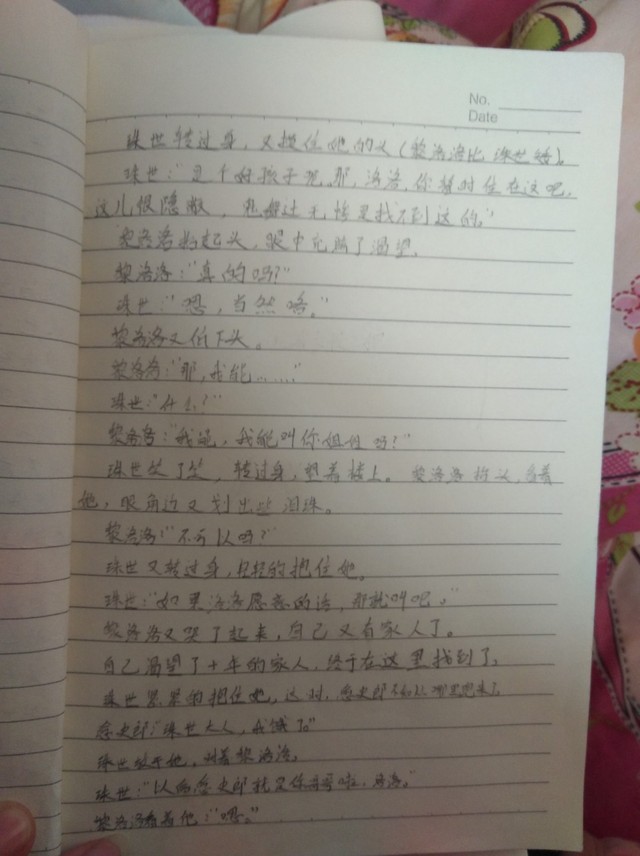 No.
Date
珠世转过身，又摸住她的头(黎洛洛比珠世矮)。
珠世："是个好孩子呢，那，洛洛，你暂时住在这吧，
这儿很隐敝，鬼舞辻无惨是找不到这的。"
黎洛洛抬起头，眼中充满了渴望。
黎洛洛："真的吗？"
珠世："嗯，当然咯。"
黎洛洛又低下头。
黎洛洛："那，我能……"
珠世："什么？"
黎洛洛："我能，我能叫你姐姐吗？"
珠世愣了愣，转过身，望着楼上。黎洛洛抬头，看着
她，眼角边又划出些泪珠。
黎洛洛："不可以吗？"
珠世又转过身，轻轻的抱住她。
珠世："如果洛洛愿意的话，那就叫吧。"
黎洛洛又哭了起来，自己又有家人了。
自己渴望了十年的家人，终于在这里找到了。
珠世紧紧的抱住她，这时，愈史郎不知从哪里出来了
愈史郎："珠世大人，我饿了。"
珠世放开她，对着黎洛洛。
珠世："以后愈史郎就是你哥哥啦，洛洛。"
黎洛洛看着他："嗯。"